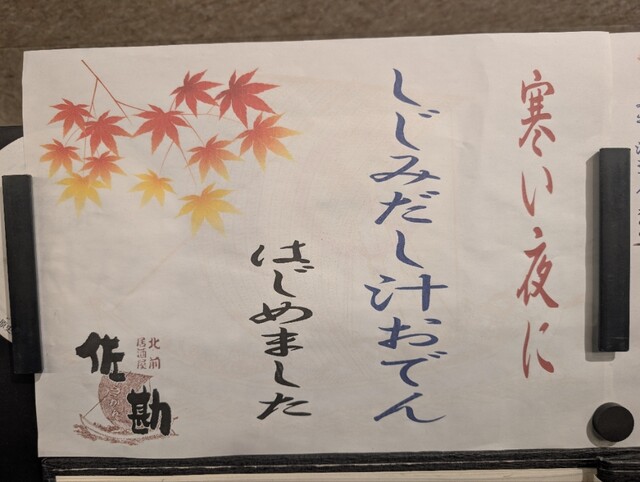 寒い夜に
しじみだし汁おでん
はじめました
北前
居酒屋
佐勘